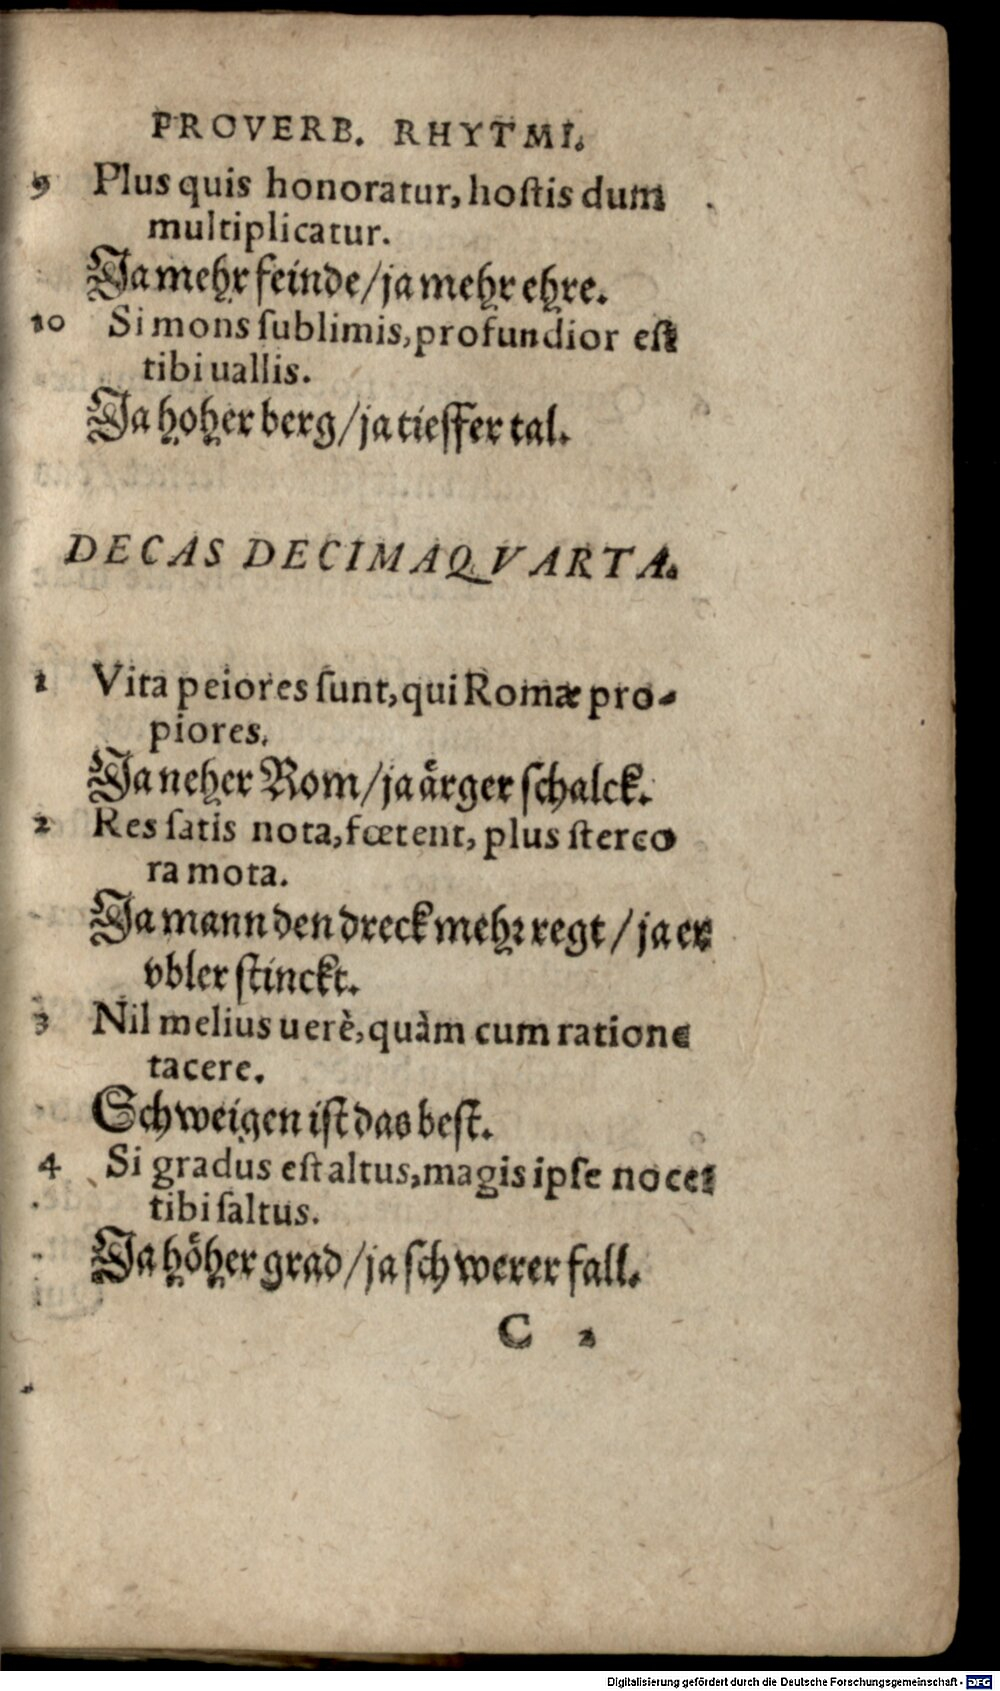 PROVERB. RHYTMI.
9 Plus quis honoratur, hoſtis dum
multiplicatur.
Ja mehr feinde/ ja mehr ehre.
10 Si mons ſublimis, profundior eſt
tibi uallis.
Ja hoher berg/ ja tieffer tal.
DECAS DECIMAQVARTA.
1 Vita peiores ſunt, qui Romæ pro-
piores.
Ja neher Rom/ ja aͤrger ſchalck.
2 Res ſatis nota, fœtent, plus ſterco
ra mota.
Ja mann den dreck mehꝛ regt/ ja er
vbler ſtinckt.
3 Nil melius uerè, quàm cum ratione
tacere.
Schweigen iſt das beſt.
4 Si gradus eſt altus, magis ipſe nocet
tibi ſaltus.
Ja hoͤher grad/ ja ſchwerer fall.
C 2
Digitalisierung gefördert durch die Deutsche Forschungsgemeinschaft - DFG